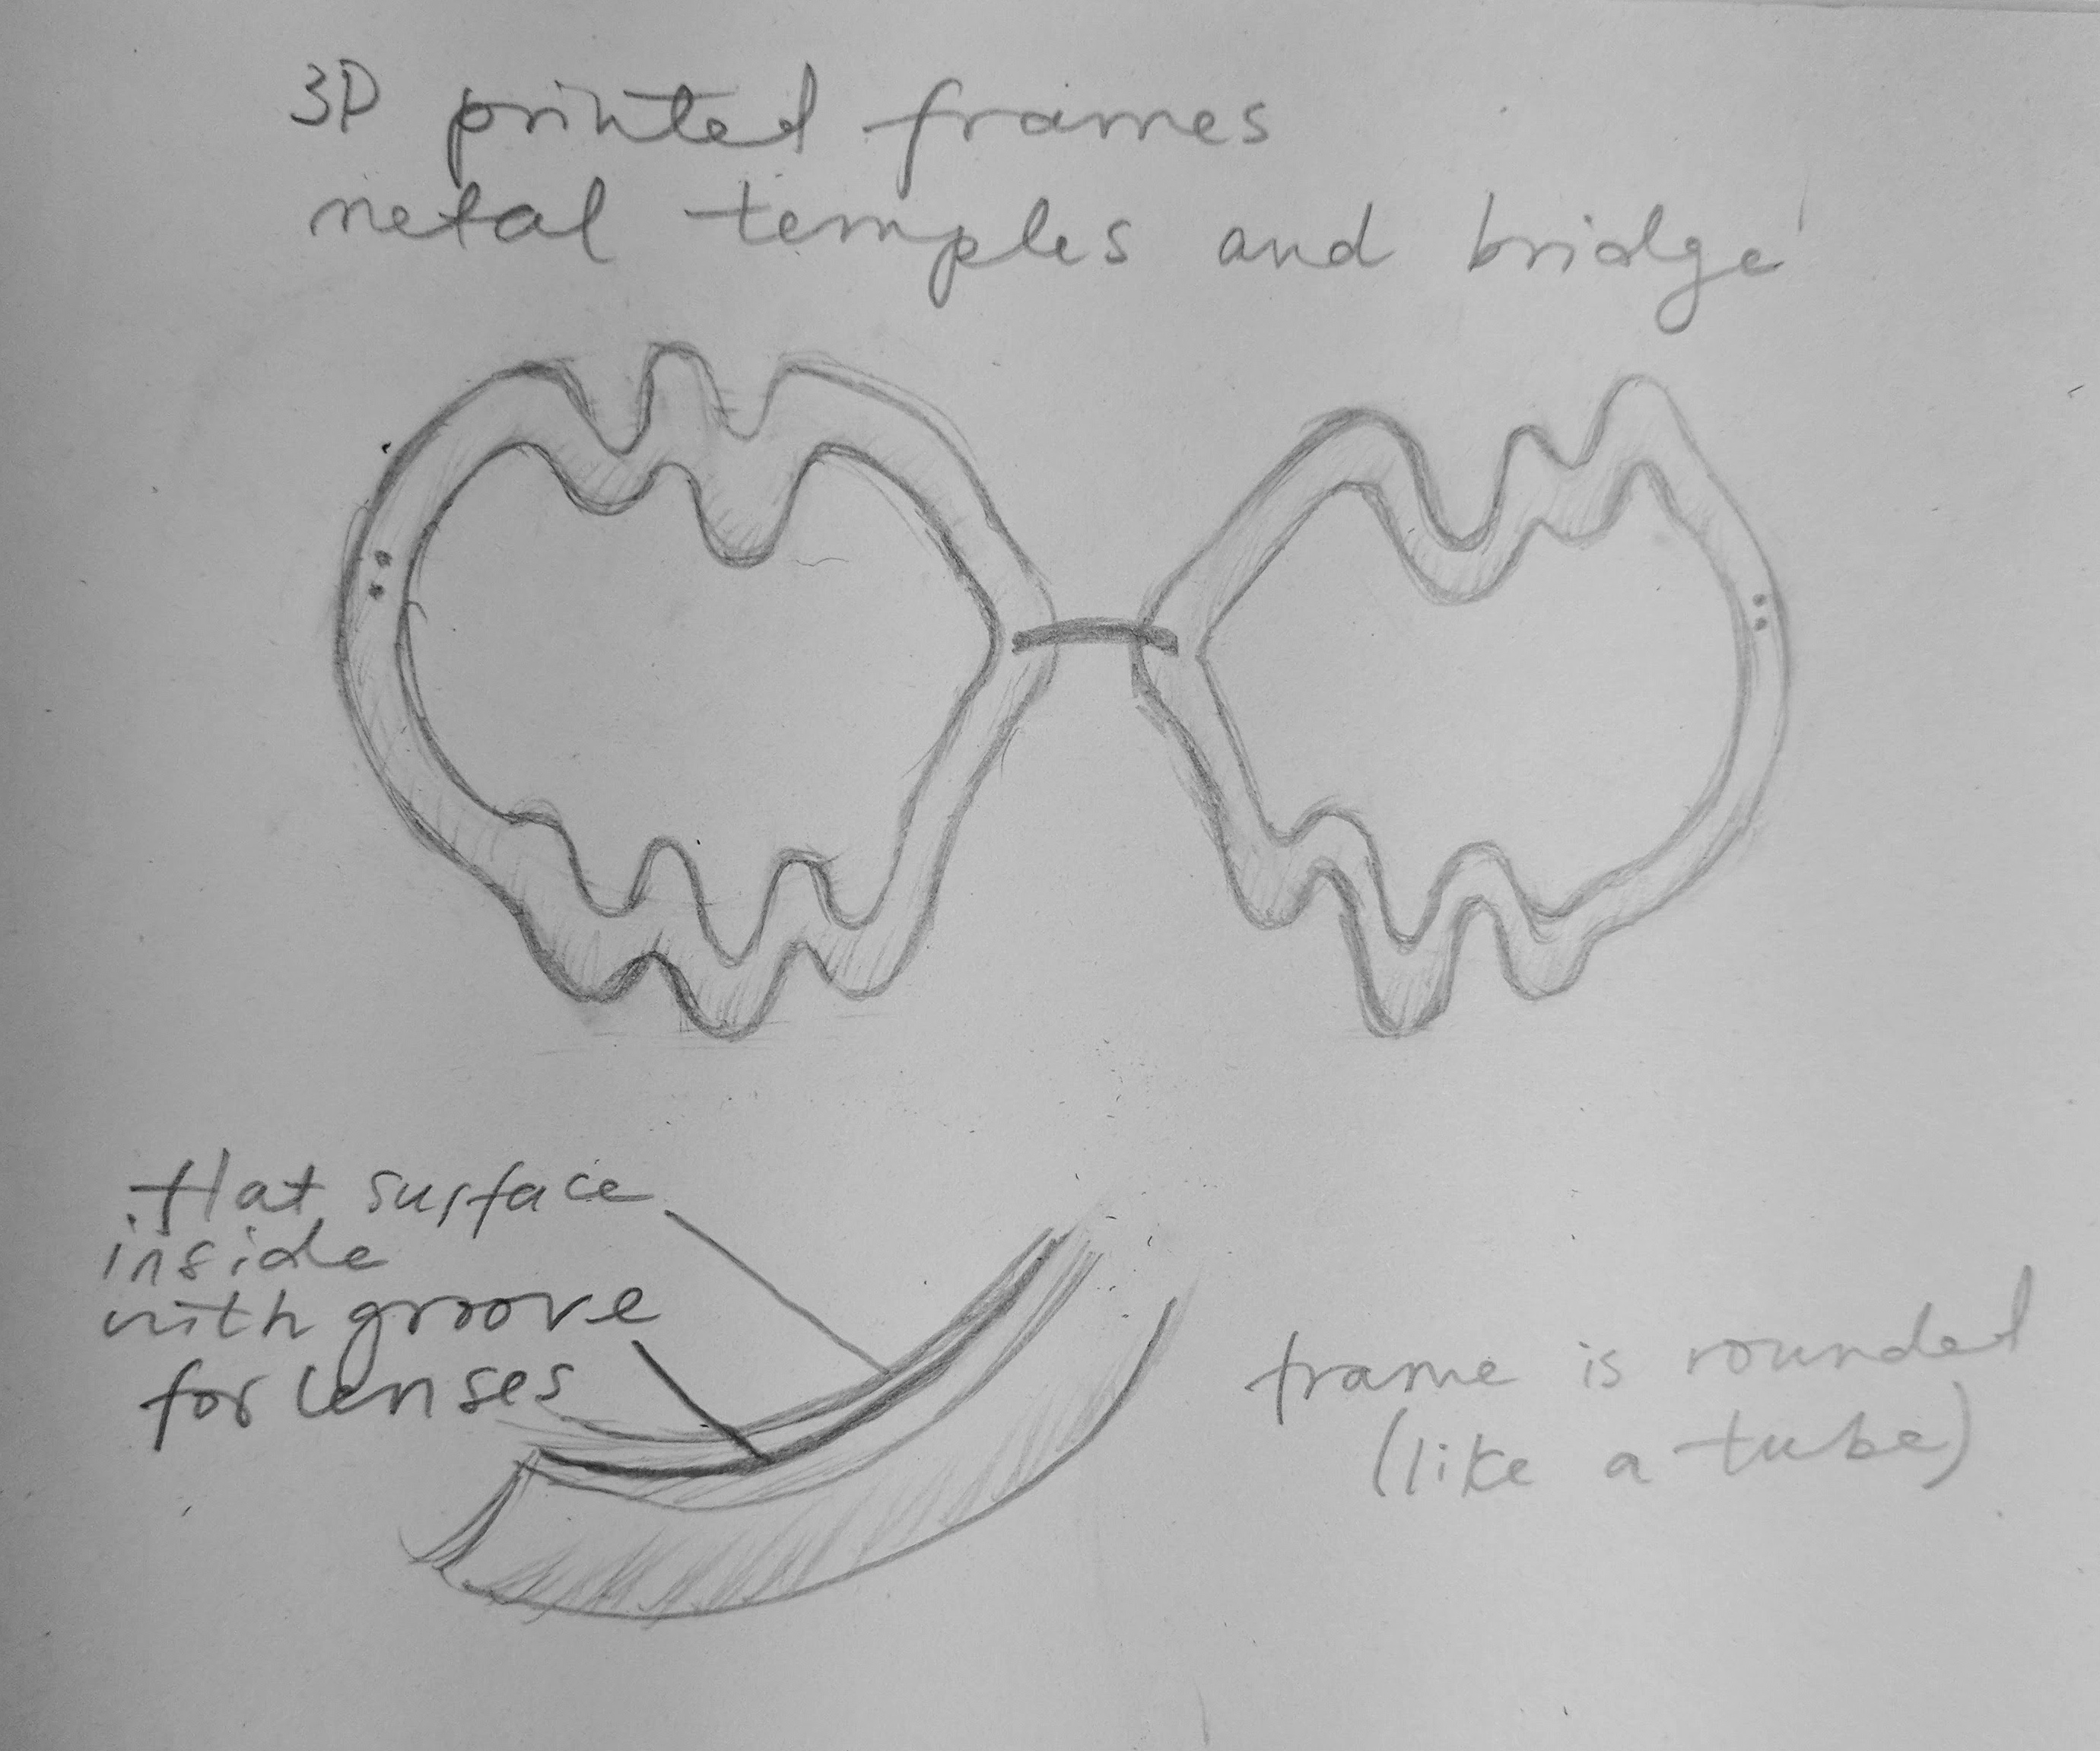 3D printed frames
metal temples and bridge
flat surface
inside
with groove
for lenses
frame is rounded
(like a tube)